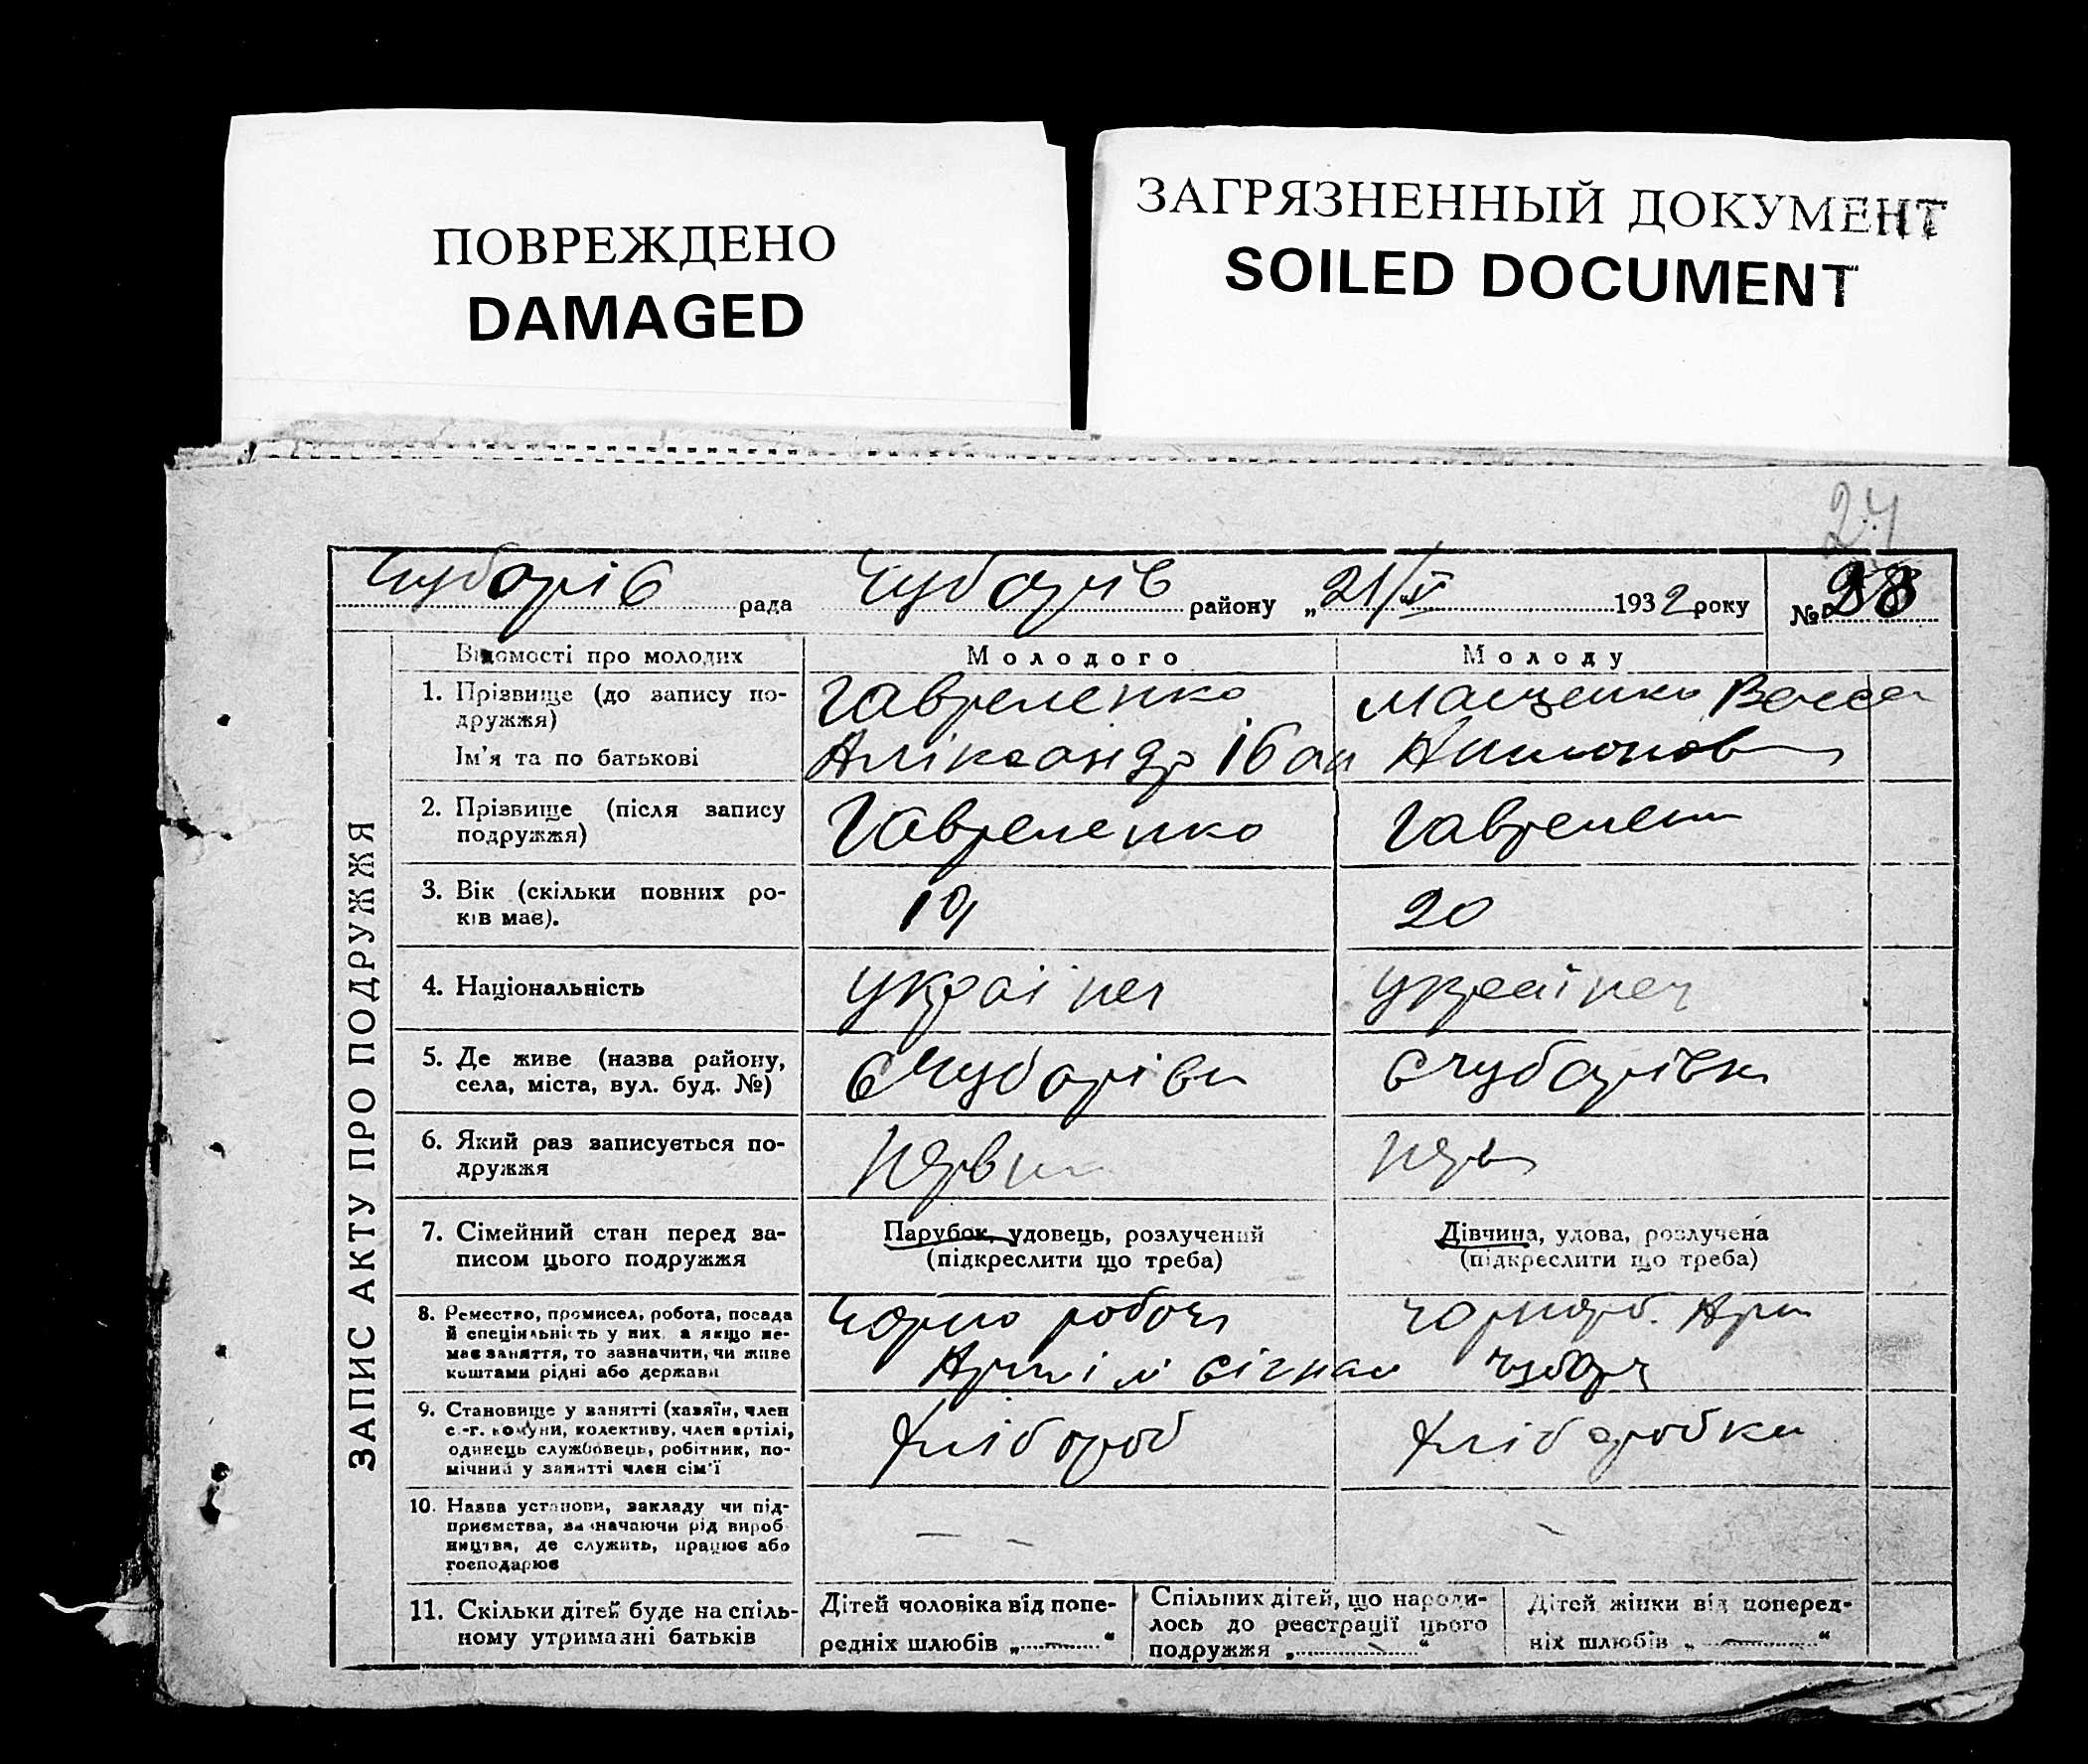 ПОВРЕЖДЕНО
DAMAGED
ЗАГРЯЗНЕННЫЙ ДОКУМЕНТ
SOILED DOCUMENT
24
Чубарів рада Чубарів району „21/V 1932 року № 28
ЗАПИС АКТУ ПРО ПОДРУЖЖЯ
Відомості про молодих
Молодого
Молоду
1. Прізвище (до запису по-
дружжя)
Ім'я та по батькові
Гавреленко
Аліксандр Іван
Мащенко Васса
2. Прізвище (після запису
подружжя)
Гавреленко
Гаврелен
3. Вік (скільки повних ро-
ків має).
19
20
4. Національність
Українец
Українец
5. Де живе (назва району,
села, міста, вул. буд. №)
с Чубарівк
с Чубарівк
6. Який раз записується по-
дружжя
перви
перв
7. Сімейний стан перед за-
писом цього подружжя
Парубок, удовець, розлучений
(підкреслити що треба)
Дівчина, удова, розлучена
(підкреслити що треба)
8. Ремество, промисел, робота, посада
й спеціяльність у них, а якщо не-
має заняття, то зазначити, чи живе
коштами рідні або держави
Чорно робоч
Чорнораб. Арт
Чубар
9. Становище у занятті (хазяїн, член
с.-г. комуни, колективу, член артілі,
одинець службовець, робітник, по-
мічний у занятті член сім'ї
Хлібороб
Хліборобка
10. Назва установи, закладу чи під-
приємства, зазначаючи рід вироб
ництва, де служить, працює або
господарює
— —
—
11. Скільки дітей буде на спіль-
ному утриманні батьків
Дітей чоловіка від попе-
редніх шлюбів „—“
Спільних дітей, що народи-
лось до реєстрації цього
подружжя „—“
Дітей жінки від поперед-
ніх шлюбів „—“